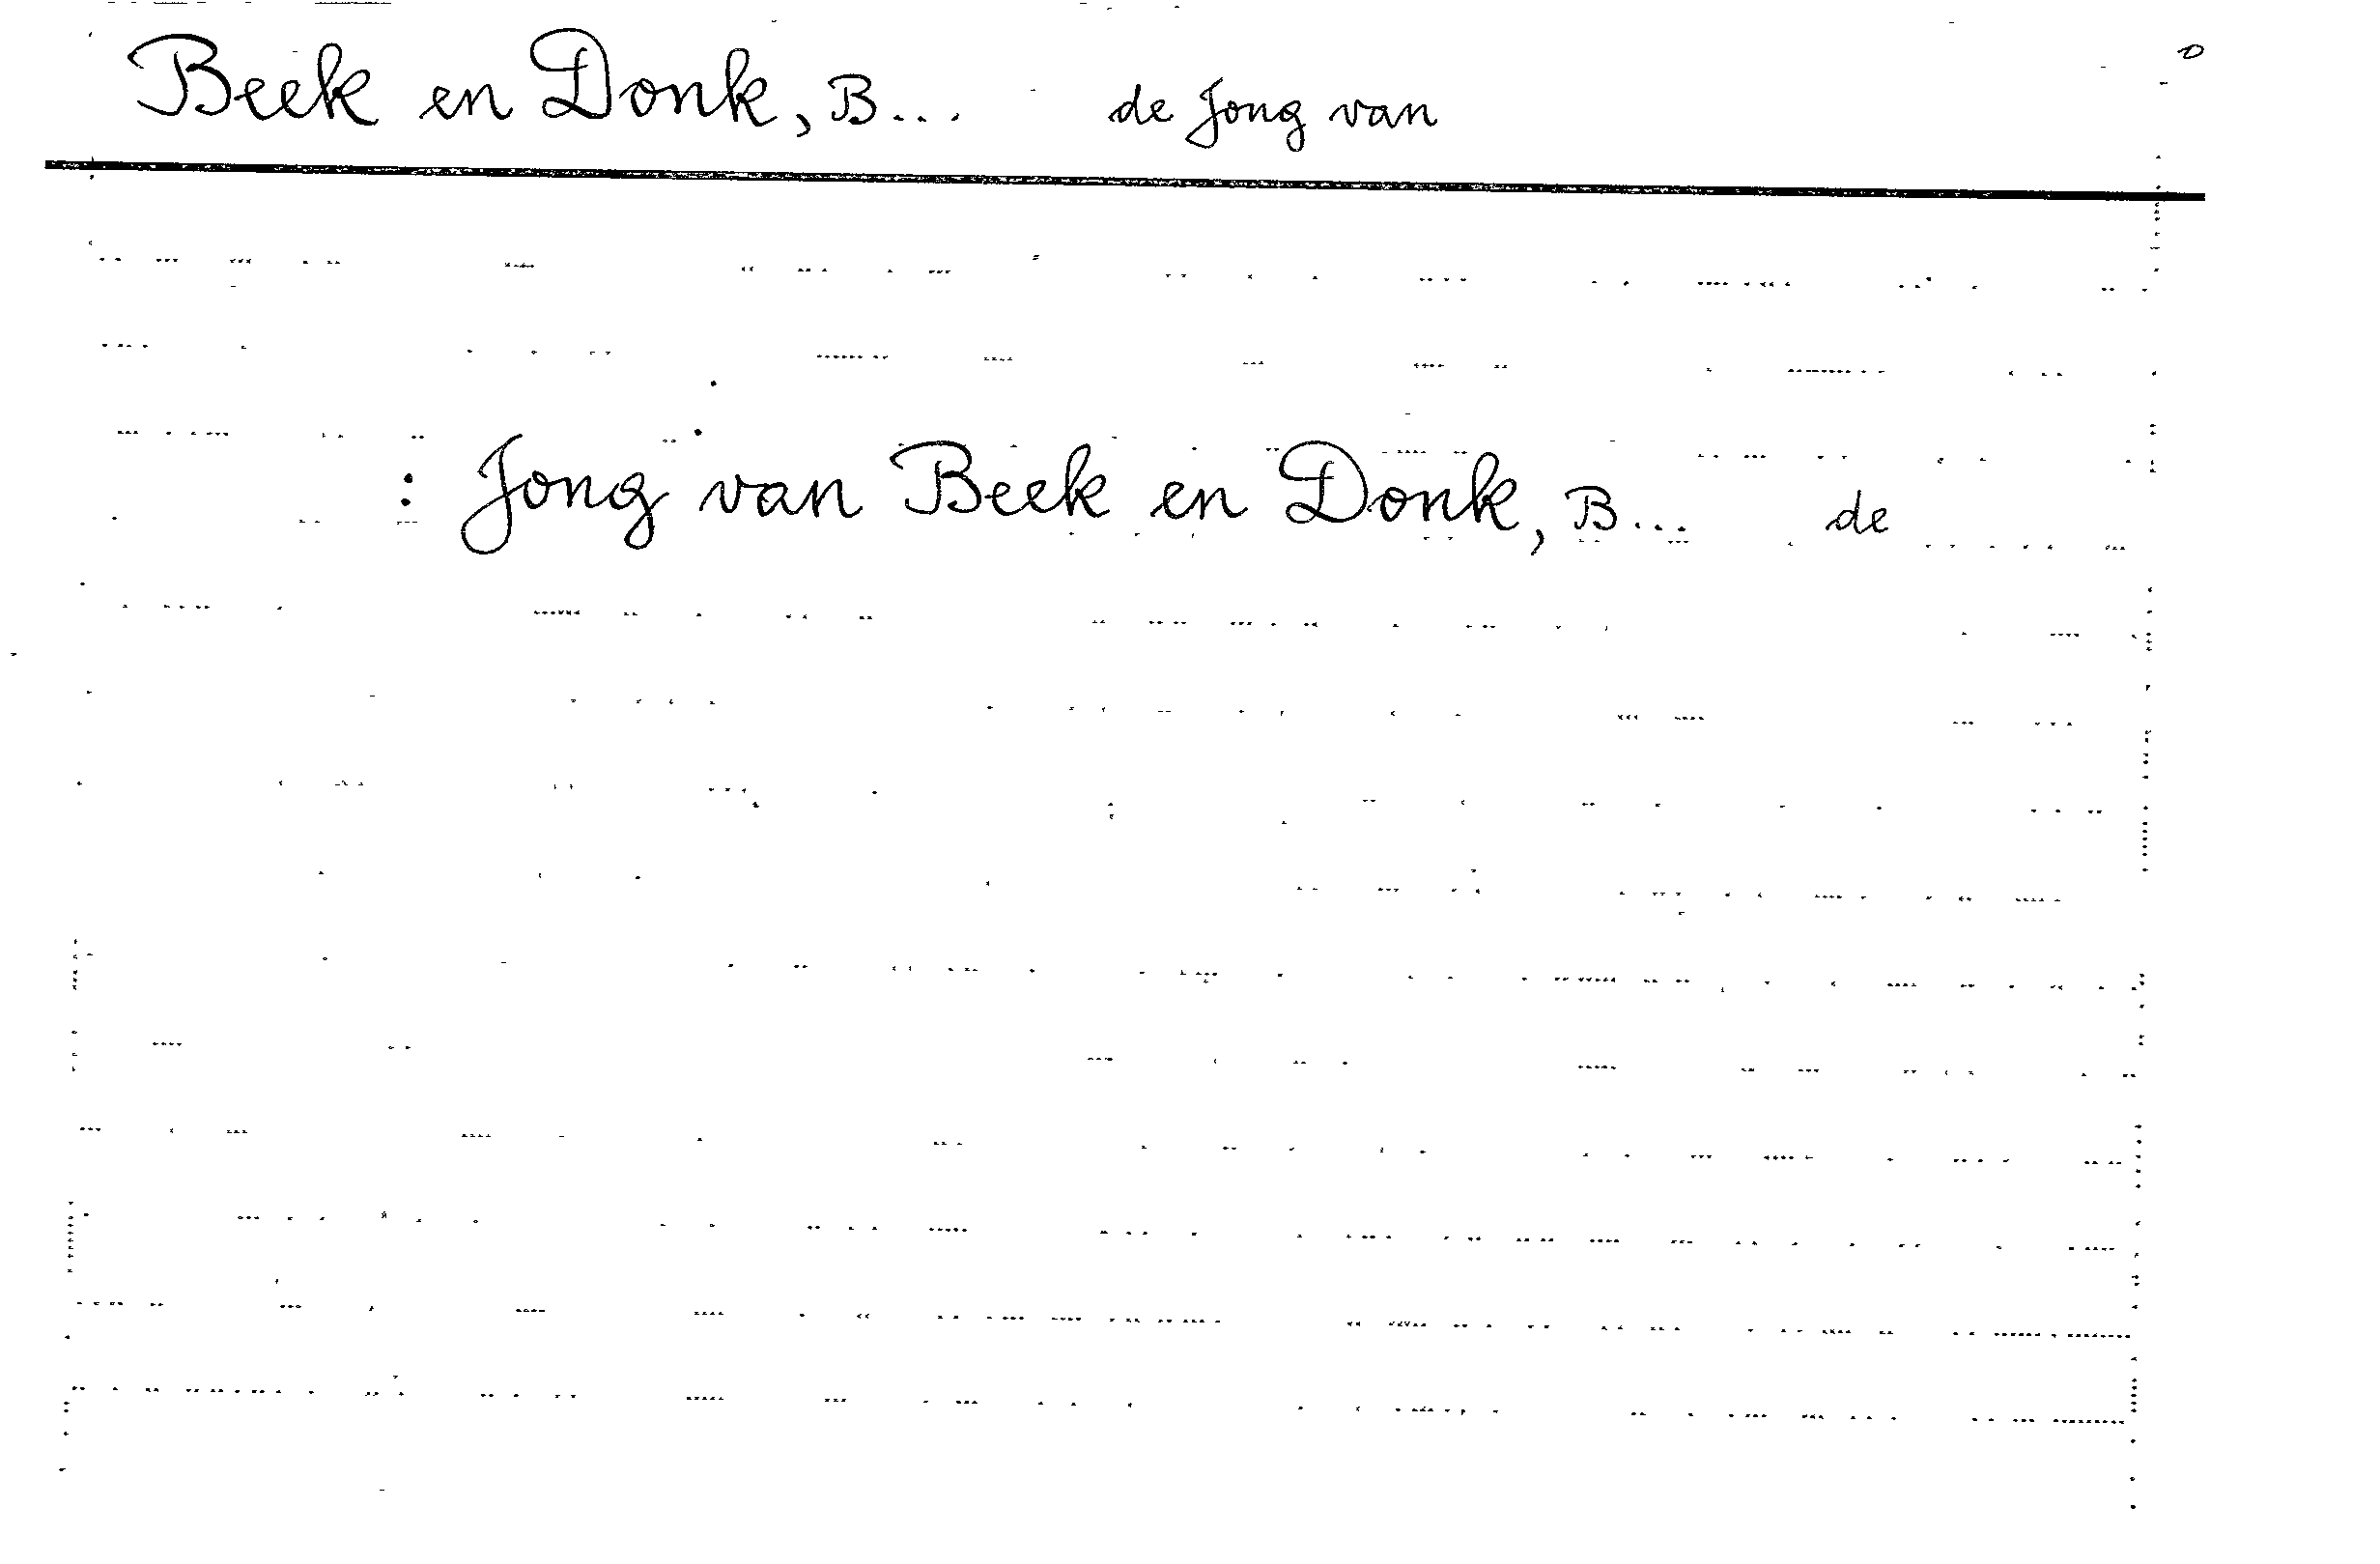 Beek en Donk, B... de Jong van
: Jong van Beek en Donk, B... de